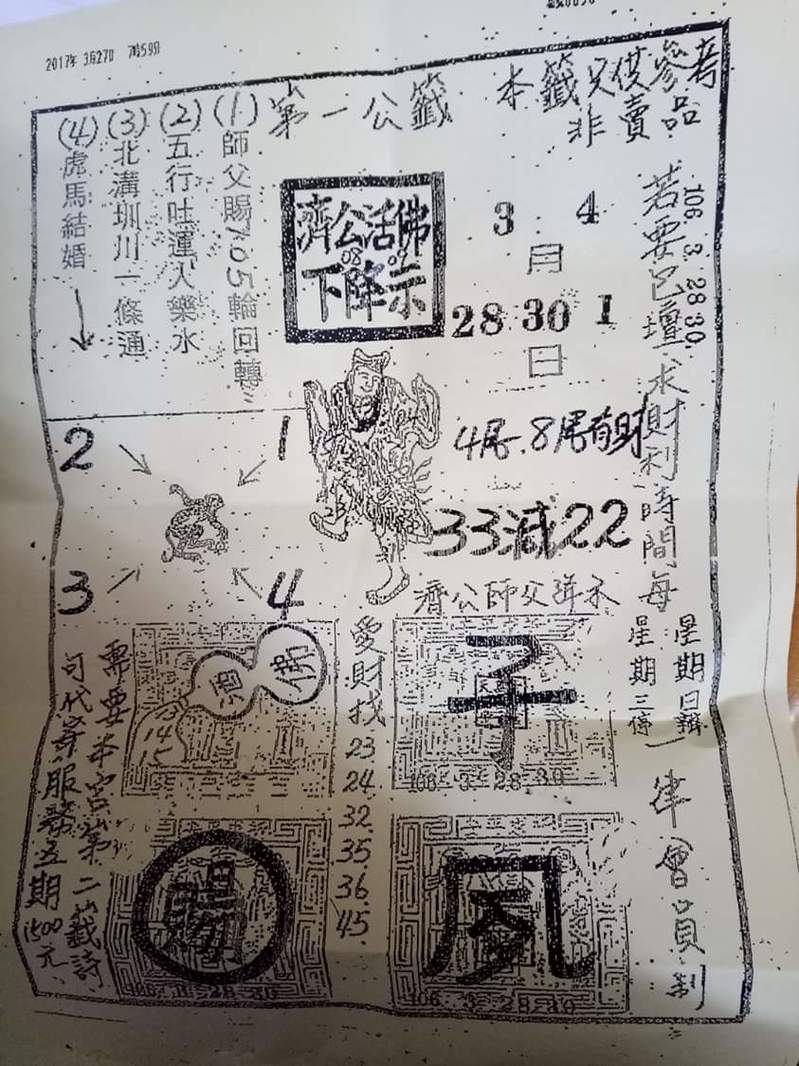 2017年 3月27日 7時59分
本籤只供參考
非賣品
第一公籤
(1)師父賜705輪回轉
(2)五行吐運人樂水
(3)北溝圳川一條通
(4)虎馬結婚
濟公活佛
08 09
下降示
3 4
月
28 30 1
日
106. 3. 28 30.
若要包壇求財利時間每
星期日辦
星期三停
一律會員制
4尾.8尾有財
33減22
濟公師父降示
1
2
3
4
佛
恩
13
14
15
愛財找
23
24
32
35
36
45
子
106. 3. 28 30
106. 3. 28 30
106. 3. 28 30
需要本宮第二仙籤詩
可代寄服務五期1500元